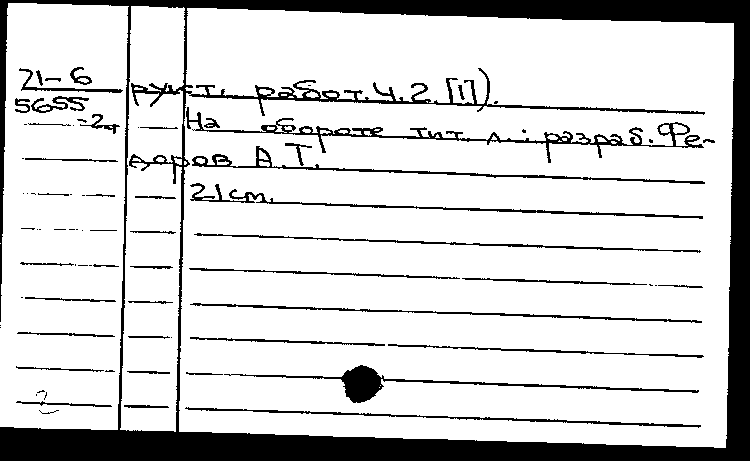 71-6
5655
-2ч
рукт. работ. Ч.2. [1]).
На обороте тит. л.: разраб. Фе-
доров А.Т.
21 см.
2